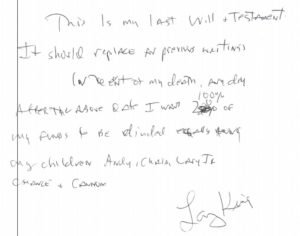 This Is my Last Will + Testament
It should replace all previous writings
In the event of my death, any day
100%
After the above date I want of
my funds to be divided equally among
my children Andy, Chaia, Larry Jr
Chance + Cannon
Larry King